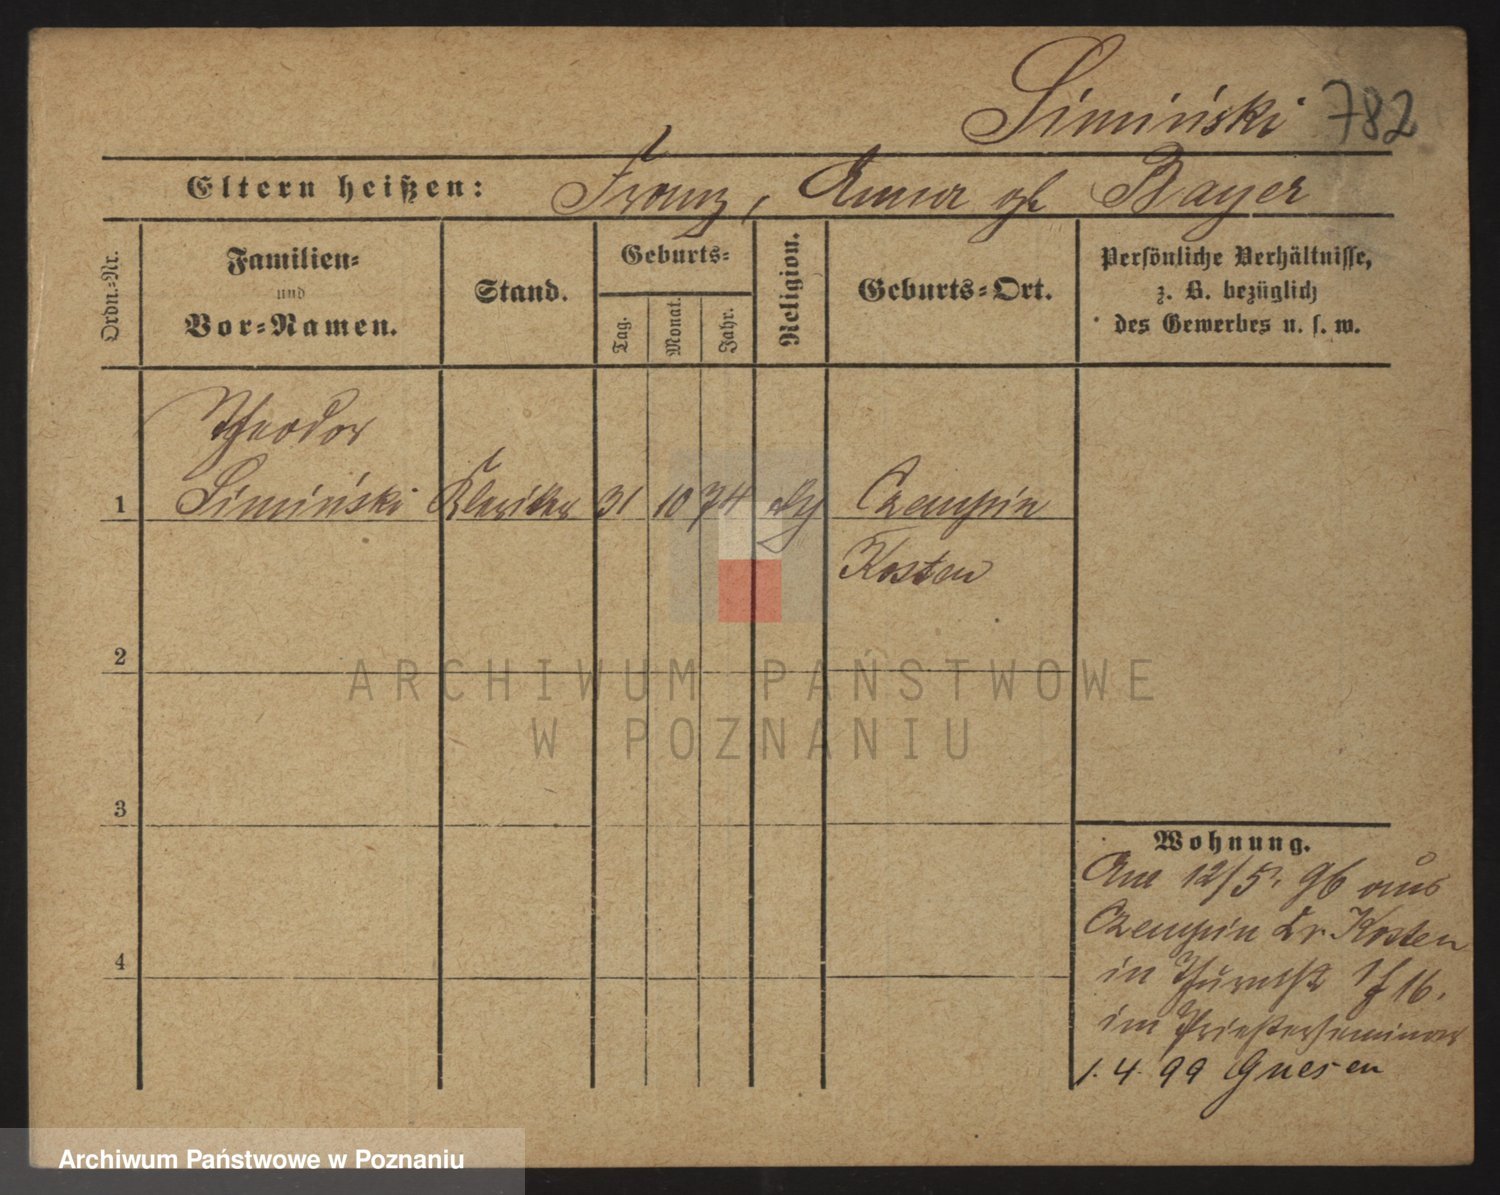 Simiński 782
Eltern heißen: Franz, Anna gb Bayer
Ordn.-Nr.
Familien-
und
Vor-Namen.
Stand.
Geburts-
Tag.
Monat.
Jahr.
Religion.
Geburts-Ort.
Persönliche Verhältnisse,
z. B. bezüglich
des Gewerbes u. s. w.
Theodor
1 Simiński Kleriker 31 10 74 Czempin
Kosten
2
3
4
Wohnung.
Am 12/5. 96 aus
Czempin Kr. Kosten
in 16.
im Priesterseminar
1. 4. 99 Gnesen
ARCHIWUM PAŃSTWOWE
W POZNANIU
Archiwum Państwowe w Poznaniu